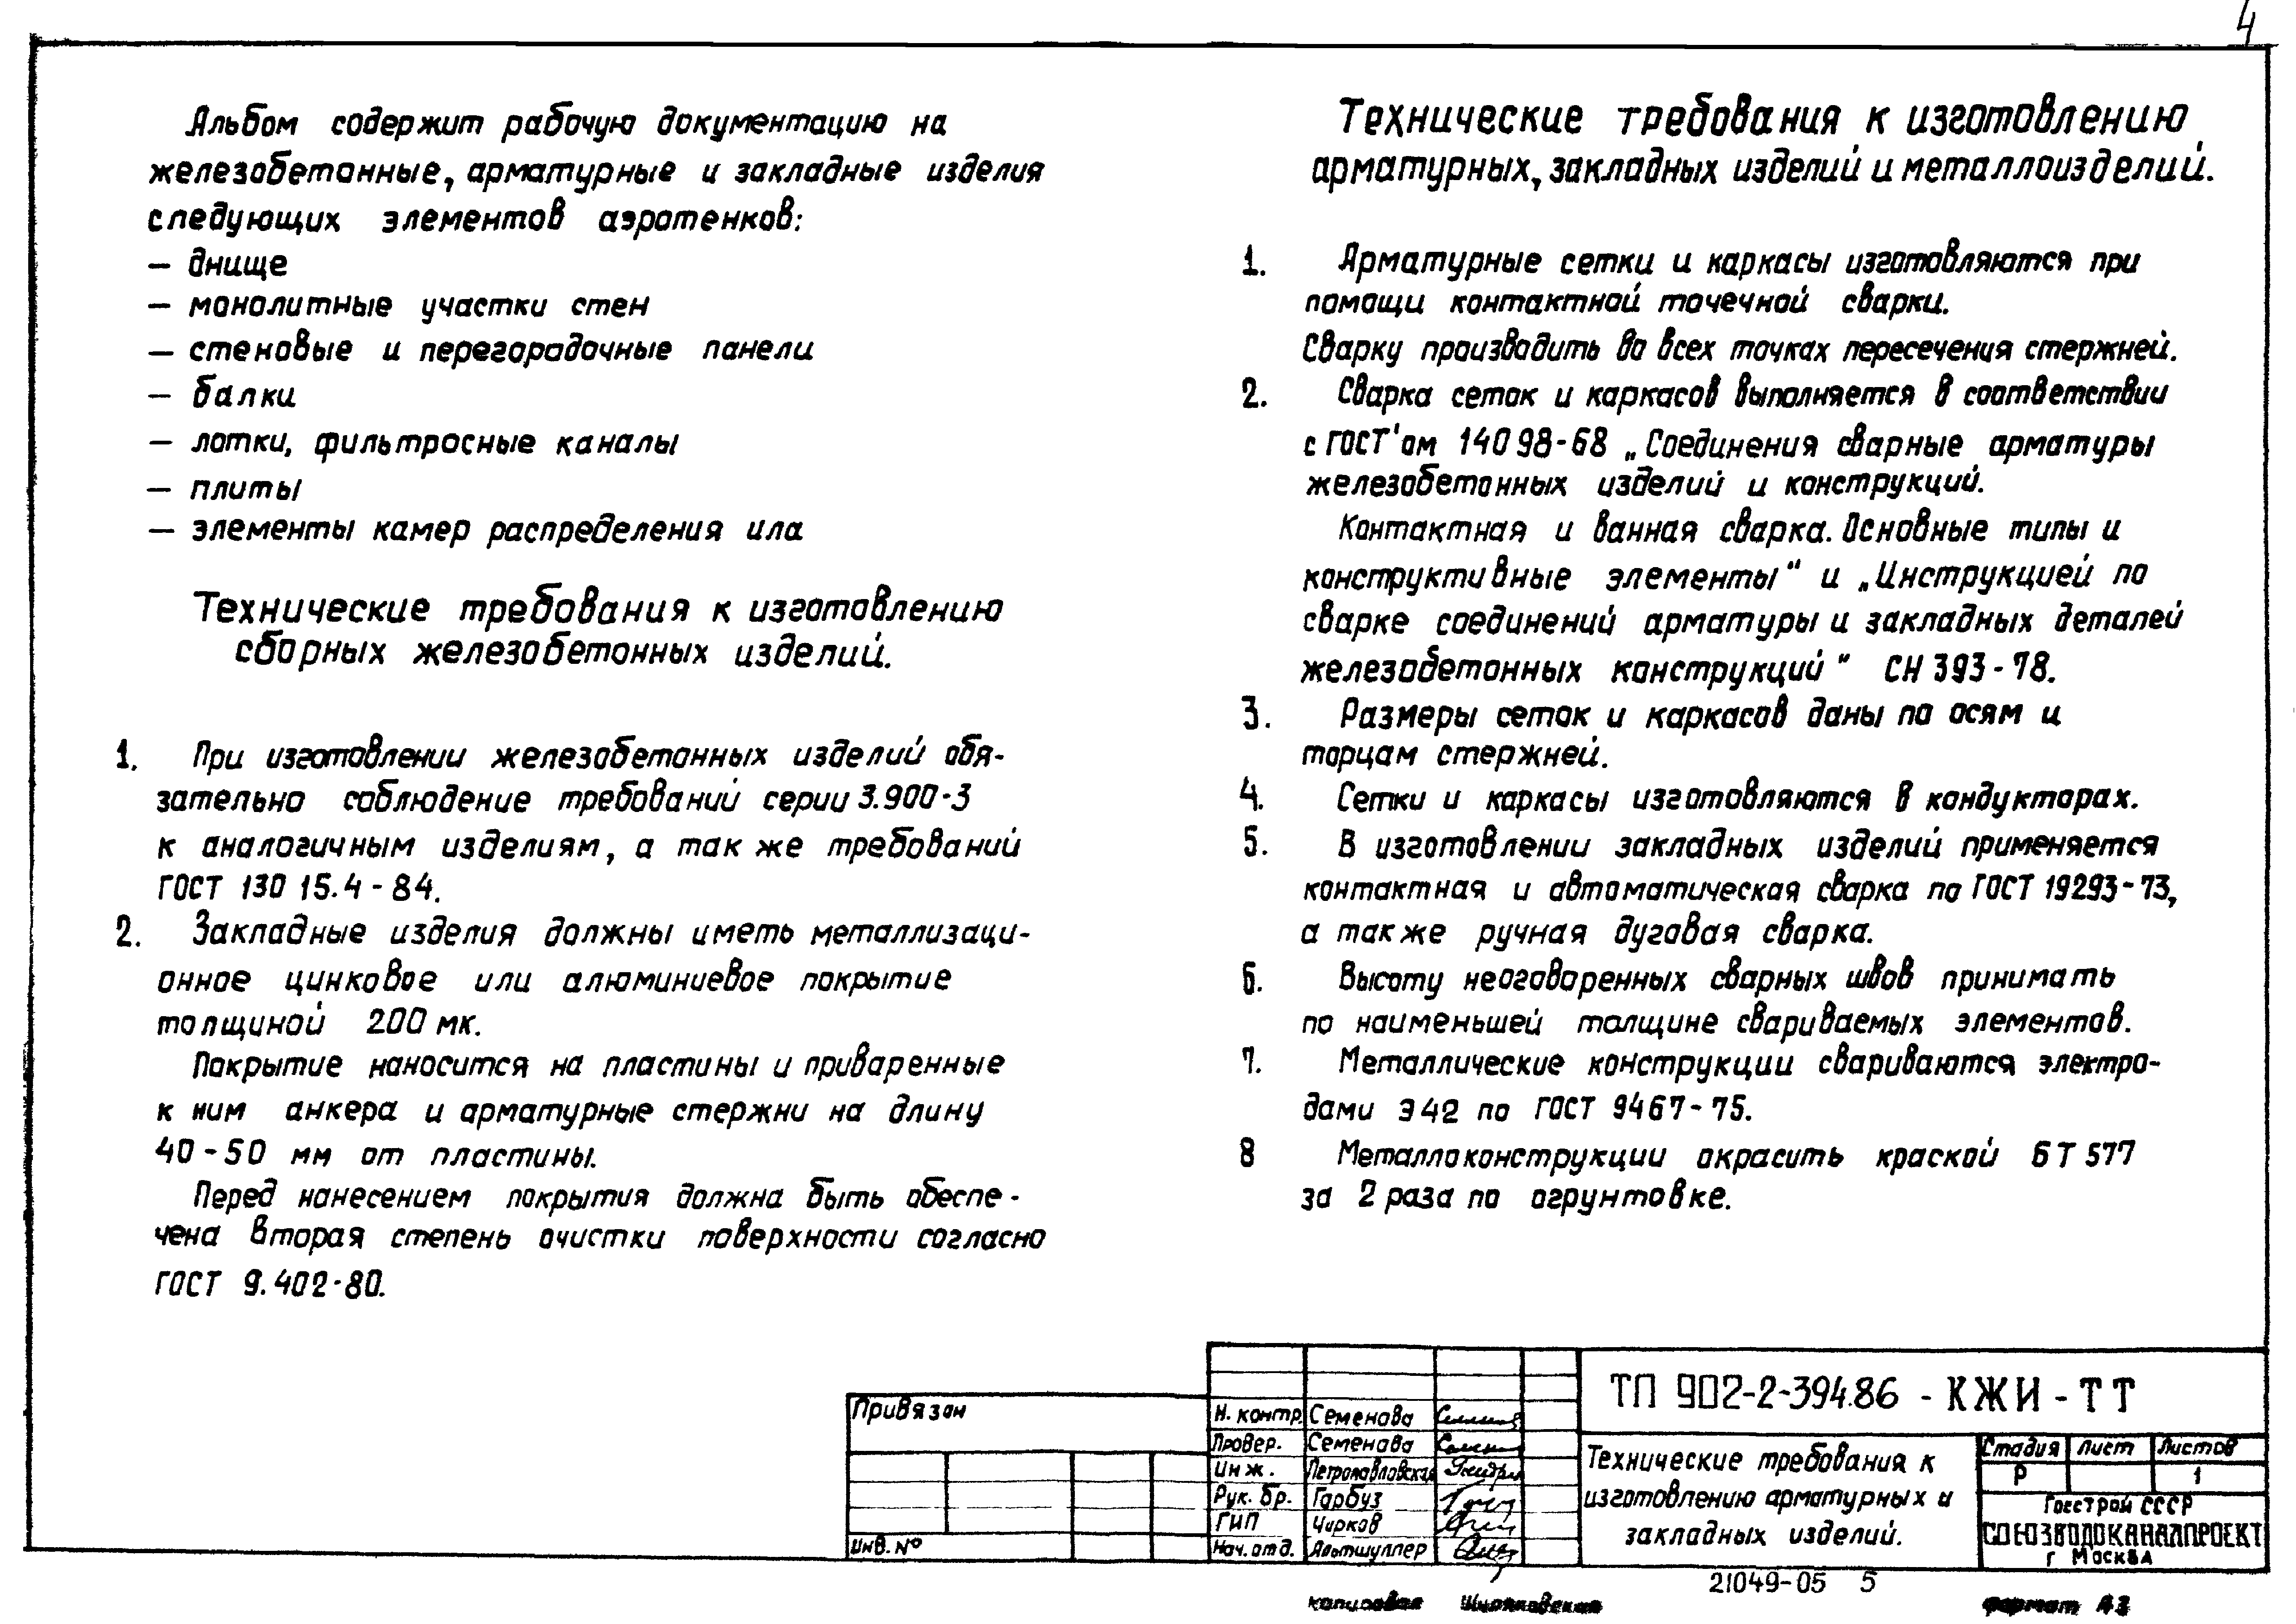 4
Альбом содержит рабочую документацию на
железобетонные, арматурные и закладные изделия
следующих элементов аэротенков:
— днище
— монолитные участки стен
— стеновые и перегородочные панели
— балки
— лотки, фильтросные каналы
— плиты
— элементы камер распределения ила
Технические требования к изготовлению
сборных железобетонных изделий.
1. При изготовлении железобетонных изделий обя-
зательно соблюдение требований серии 3.900-3
к аналогичным изделиям, а так же требований
ГОСТ 13015.4-84.
2. Закладные изделия должны иметь металлизаци-
онное цинковое или алюминиевое покрытие
толщиной 200 мк.
Покрытие наносится на пластины и приваренные
к ним анкера и арматурные стержни на длину
40-50 мм от пластины.
Перед нанесением покрытия должна быть обеспе-
чена вторая степень очистки поверхности согласно
ГОСТ 9.402-80.
Технические требования к изготовлению
арматурных, закладных изделий и металлоизделий.
1. Арматурные сетки и каркасы изготовляются при
помощи контактной точечной сварки.
Сварку производить во всех точках пересечения стержней.
2. Сварка сеток и каркасов выполняется в соответствии
с ГОСТ'ом 14098-68 „Соединения сварные арматуры
железобетонных изделий и конструкций.
Контактная и ванная сварка. Основные типы и
конструктивные элементы" и „Инструкцией по
сварке соединений арматуры и закладных деталей
железобетонных конструкций" СН 393-78.
3. Размеры сеток и каркасов даны по осям и
торцам стержней.
4. Сетки и каркасы изготовляются в кондукторах.
5. В изготовлении закладных изделий применяется
контактная и автоматическая сварка по ГОСТ 19293-73,
а также ручная дуговая сварка.
6. Высоту неоговоренных сварных швов принимать
по наименьшей толщине свариваемых элементов.
7. Металлические конструкции свариваются электро-
дами Э42 по ГОСТ 9467-75.
8 Металлоконструкции окрасить краской БТ 577
за 2 раза по огрунтовке.
Привязан
Инв. №
Н. контр. Семенова
Провер. Семенова
Инж. Петропавловская
Рук. бр. Гарбуз
ГИП Чирков
Нач. отд. Альтшуллер
ТП 902-2-394.86 - КЖИ - ТТ
Технические требования к
изготовлению арматурных и
закладных изделий.
Стадия Лист Листов
Р 1
Госстрой СССР
СОЮЗВОДОКАНАЛПРОЕКТ
г Москва
21049-05 5
копировал
формат А3